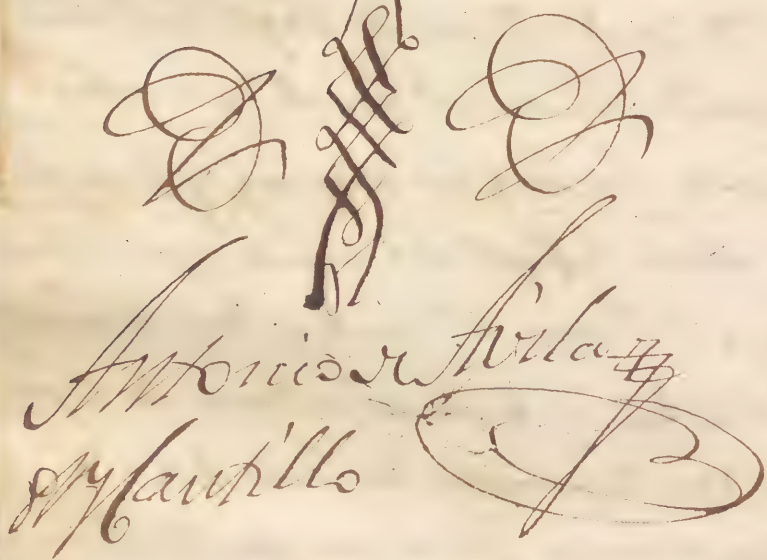 Antonio de Avila
y Cantillo